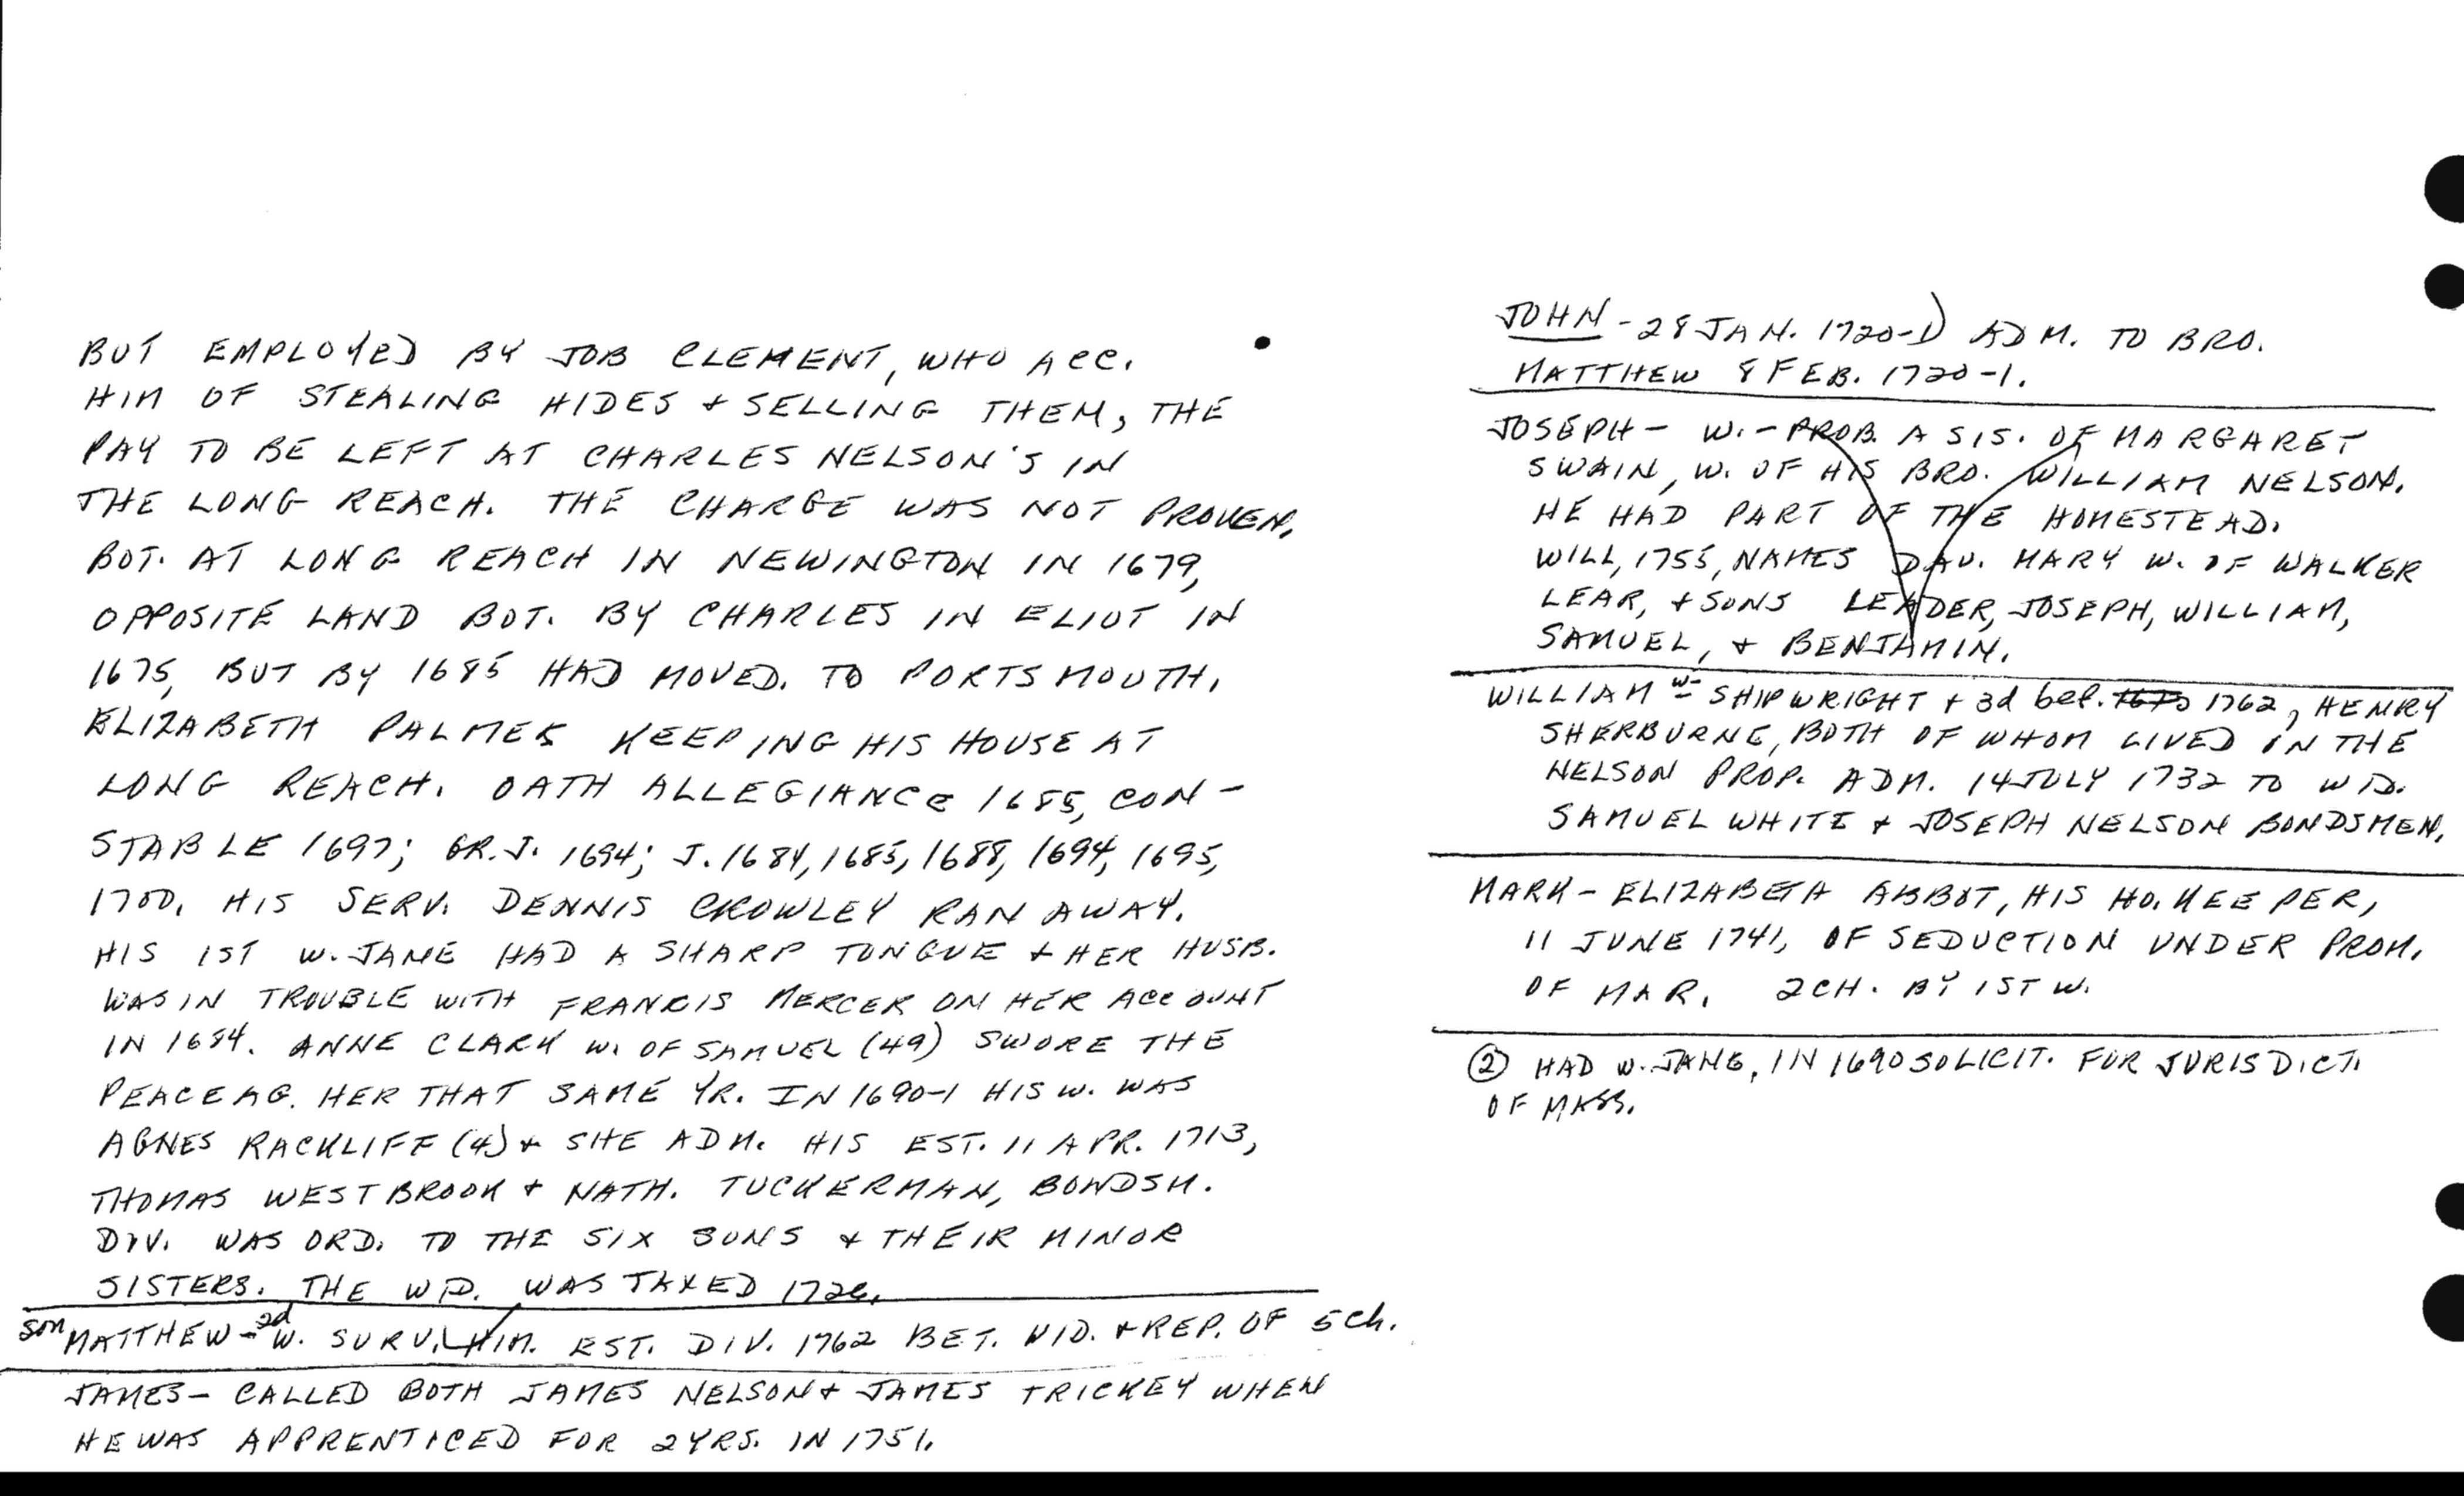 BUT EMPLOYED BY JOB CLEMENT, WHO ACC.
HIM OF STEALING HIDES + SELLING THEM, THE
PAY TO BE LEFT AT CHARLES NELSON'S IN
THE LONG REACH. THE CHARGE WAS NOT PROVEN.
BOT. AT LONG REACH IN NEWINGTON IN 1679,
OPPOSITE LAND BOT. BY CHARLES IN ELIOT IN
1675, BUT BY 1685 HAD MOVED. TO PORTSMOUTH,
ELIZABETH PALMER KEEPING HIS HOUSE AT
LONG REACH. OATH ALLEGIANCE 1685, CON-
STABLE 1697; GR.J. 1694; J. 1684, 1685, 1688, 1694, 1695,
1700. HIS SERV. DENNIS CROWLEY RAN AWAY.
HIS 1ST W. JANE HAD A SHARP TONGUE + HER HUSB.
WAS IN TROUBLE WITH FRANCIS MERCER ON HER ACCOUNT
IN 1684. ANNE CLARK W. OF SAMUEL (49) SWORE THE
PEACE AG. HER THAT SAME YR. IN 1690-1 HIS W. WAS
AGNES RACKLIFF (4) + SHE ADM. HIS EST. 11 APR. 1713,
THOMAS WESTBROOK + NATH. TUCKERMAN, BONDSM.
DIV. WAS ORD. TO THE SIX SONS + THEIR MINOR
SISTERS. THE WD. WAS TAXED 1726.
son MATTHEW - 2d W. SURV. HIM. EST. DIV. 1762 BET. WID. + REP. OF 5 ch.
JAMES - CALLED BOTH JAMES NELSON + JAMES TRICKEY WHEN
HE WAS APPRENTICED FOR 2 YRS. IN 1751.
JOHN - 28 JAN. 1720-1) ADM. TO BRO.
MATTHEW 8 FEB. 1720-1.
JOSEPH - W. - PROB. A SIS. OF MARGARET
SWAIN, W. OF HIS BRO. WILLIAM NELSON.
HE HAD PART OF THE HOMESTEAD.
WILL, 1755, NAMES DAU. MARY W. OF WALKER
LEAR, + SONS LEADER, JOSEPH, WILLIAM,
SAMUEL, + BENJAMIN.
WILLIAM w- SHIPWRIGHT + 3d bef. 1762, HENRY
SHERBURNE, BOTH OF WHOM LIVED IN THE
NELSON PROP. ADM. 14 JULY 1732 TO WID.
SAMUEL WHITE + JOSEPH NELSON BONDSMEN.
MARK - ELIZABETH ABBOT, HIS HO. KEEPER,
11 JUNE 1741, OF SEDUCTION UNDER PROM.
OF MAR. 2 CH. BY 1ST W.
② HAD W. JANE, IN 1690 SOLICIT. FOR JURISDICT.
OF MASS.